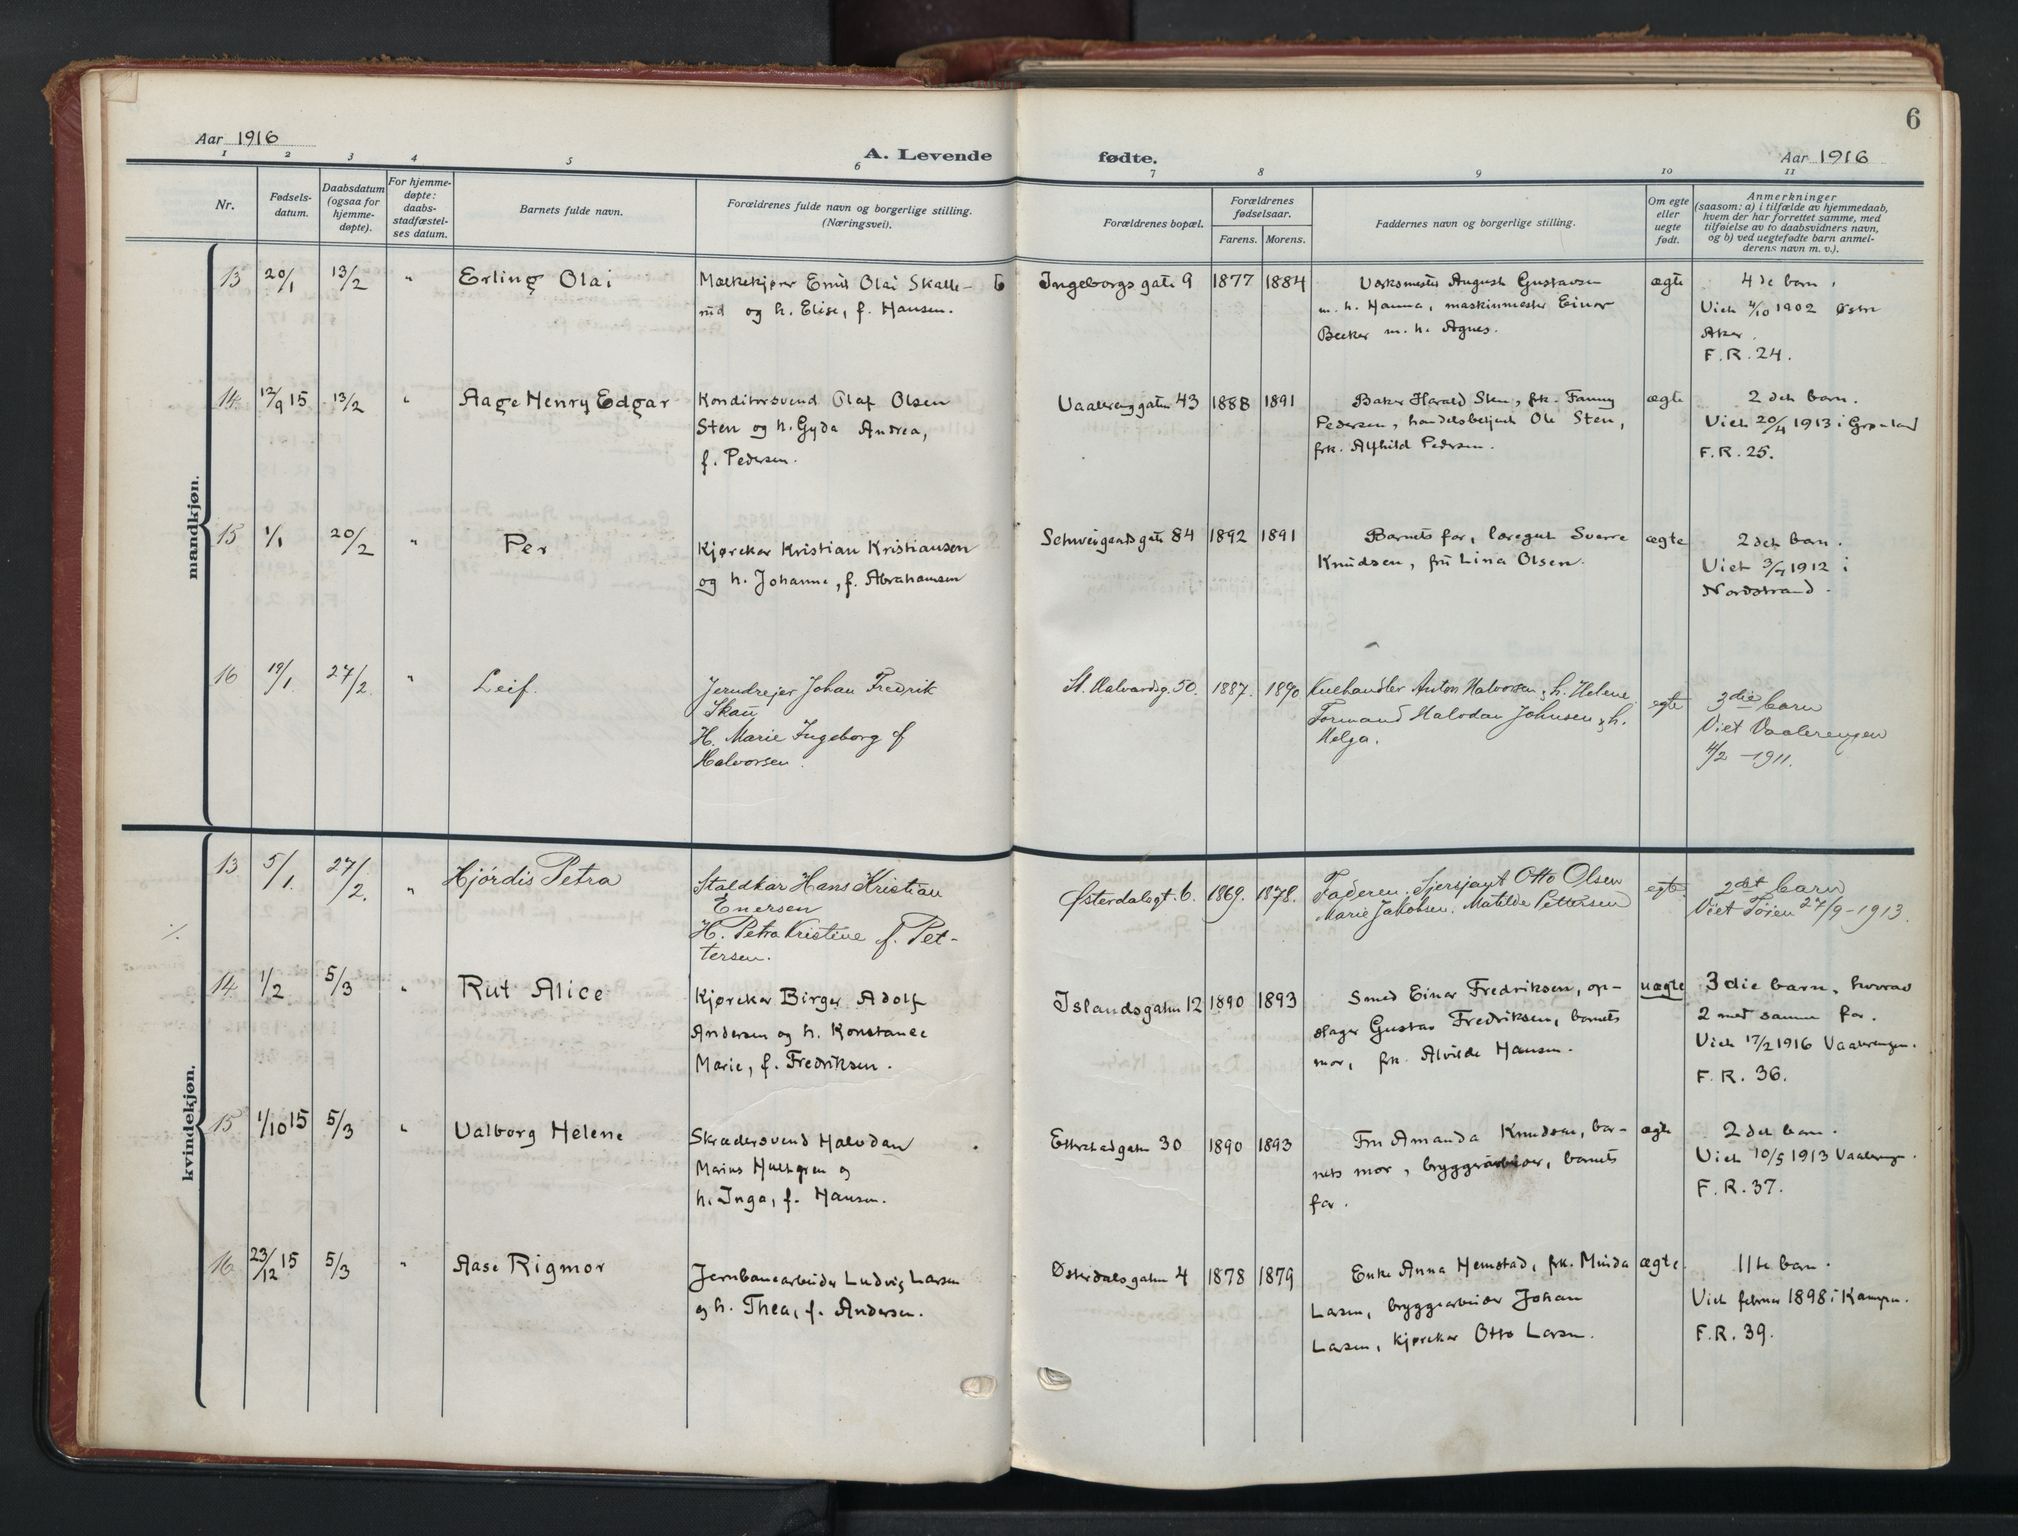 Aar 1916
A. Levende fødte.
Aar 1916
6
1 2 3 4 5 6 7 8 9 10 11
Nr.
Fødsels-
datum.
Daabsdatum
(ogsaa for
hjemme-
døpte).
For hjemme-
døpte:
daabs-
stadfæstel-
ses datum.
Barnets fulde navn.
Forældrenes fulde navn og borgerlige stilling.
(Næringsvei).
Forældrenes bopæl.
Forældrenes
fødselsaar.
Farens. Morens.
Faddernes navn og borgerlige stilling.
Om egte
eller
uegte
født.
Anmerkninger
(saasom: a) i tilfælde av hjemmedaab,
hvem der har forrettet samme, med
tilføielse av to daabsvidners navn,
og b) ved uegtefødte barn anmel-
derens navn m. v.).
mandkjøn.
13 20/1 13/2 " Erling Olai
Mælkekjører Emil Olai Skalle-
rud og h. Elise, f. Hansen.
6 Ingeborgs gate 9 1877 1884
Verksmester August Gustavsen
m. h. Hanna, maskinmester Einar
Becker m. h. Agnes.
ægte
4de barn.
Viet 4/10 1902 Østre
Aker.
F. R. 24.
14 12/9 15 13/2 " Aage Henry Edgar
Konditorsvend Olaf Olsen
Sten og h. Gyda Andrea,
f. Pedersen.
Vaalerenggaten 43 1888 1891
Baker Harald Sten, frk. Fanny
Pedersen, handelsbetjent Ole Sten,
frk. Alfhild Pedersen.
ægte
2det barn.
Viet 20/4 1913 i Grønland
F. R. 25.
15 1/1 20/2 " Per
Kjørekar Kristian Kristiansen
og h. Johanne, f. Abrahamsen
Schweigaards gate 84 1892 1891
Barnets far, læregut Sverre
Knudsen, fru Lina Olsen.
ægte
2det barn.
Viet 3/4 1912 i
Nordstrand.
16 19/1 27/2. " Leif.
Jerndreier Johan Fredrik
Skau
H. Marie Ingeborg f
Halvorsen.
St. Halvardsg. 50. 1887. 1890
Kulhandler Anton Halvorsen, h. Helene
Formand Halvdan Johnsen, h.
Helga.
egte
3die barn
Viet Vaalerengen
4/2 - 1911.
kvindekjøn.
13 5/1. 27/2. " Hjördis Petra
Staldkar Hans Kristian
Enersen
H. Petra Kristine f. Pet-
tersen.
Østerdalsgt. 6. 1869. 1878.
Faderen. Sjersjant Otto Olsen
Marie Jakobsen. Matilde Pettersen
egte.
2det barn
Viet Tøien 27/9 - 1913.
14 1/2 5/3 " Rut Alice
Kjørekar Birger Adolf
Andersen og h. Konstance
Marie, f. Fredriksen.
Islandsgaten 12 1890 1893
Smed Einar Fredriksen, op-
slager Gustav Fredriksen, barnets
mor, frk. Alvilde Hansen.
uægte
3die barn, hvorav
2 med samme far.
Viet 17/2 1916 Vaalerengen.
F. R. 36.
15 1/10 15 5/3 " Valborg Helene
Skrædersvend Halvdan
Marius Hultgren og
h. Inga, f. Hansen.
Etterstadgaten 30 1890 1893
Fru Amanda Knudsen, bar-
nets mor, bryggearbeider, barnets
far.
ægte
2det barn.
Viet 10/5 1913 Vaalereng.
F. R. 37.
16 23/12 15 5/3 " Aase Rigmor
Jernbanearbeider Ludvig Larsen
og h. Thea, f. Andersen.
Østerdalsgaten 4 1878 1879
Enke Anna Hemstad, frk. Minda
Larsen, bryggearbeider Johan
Larsen, kjørekar Otto Larsen.
ægte
11te barn.
Viet februar 1898 i Kampen.
F. R. 39.